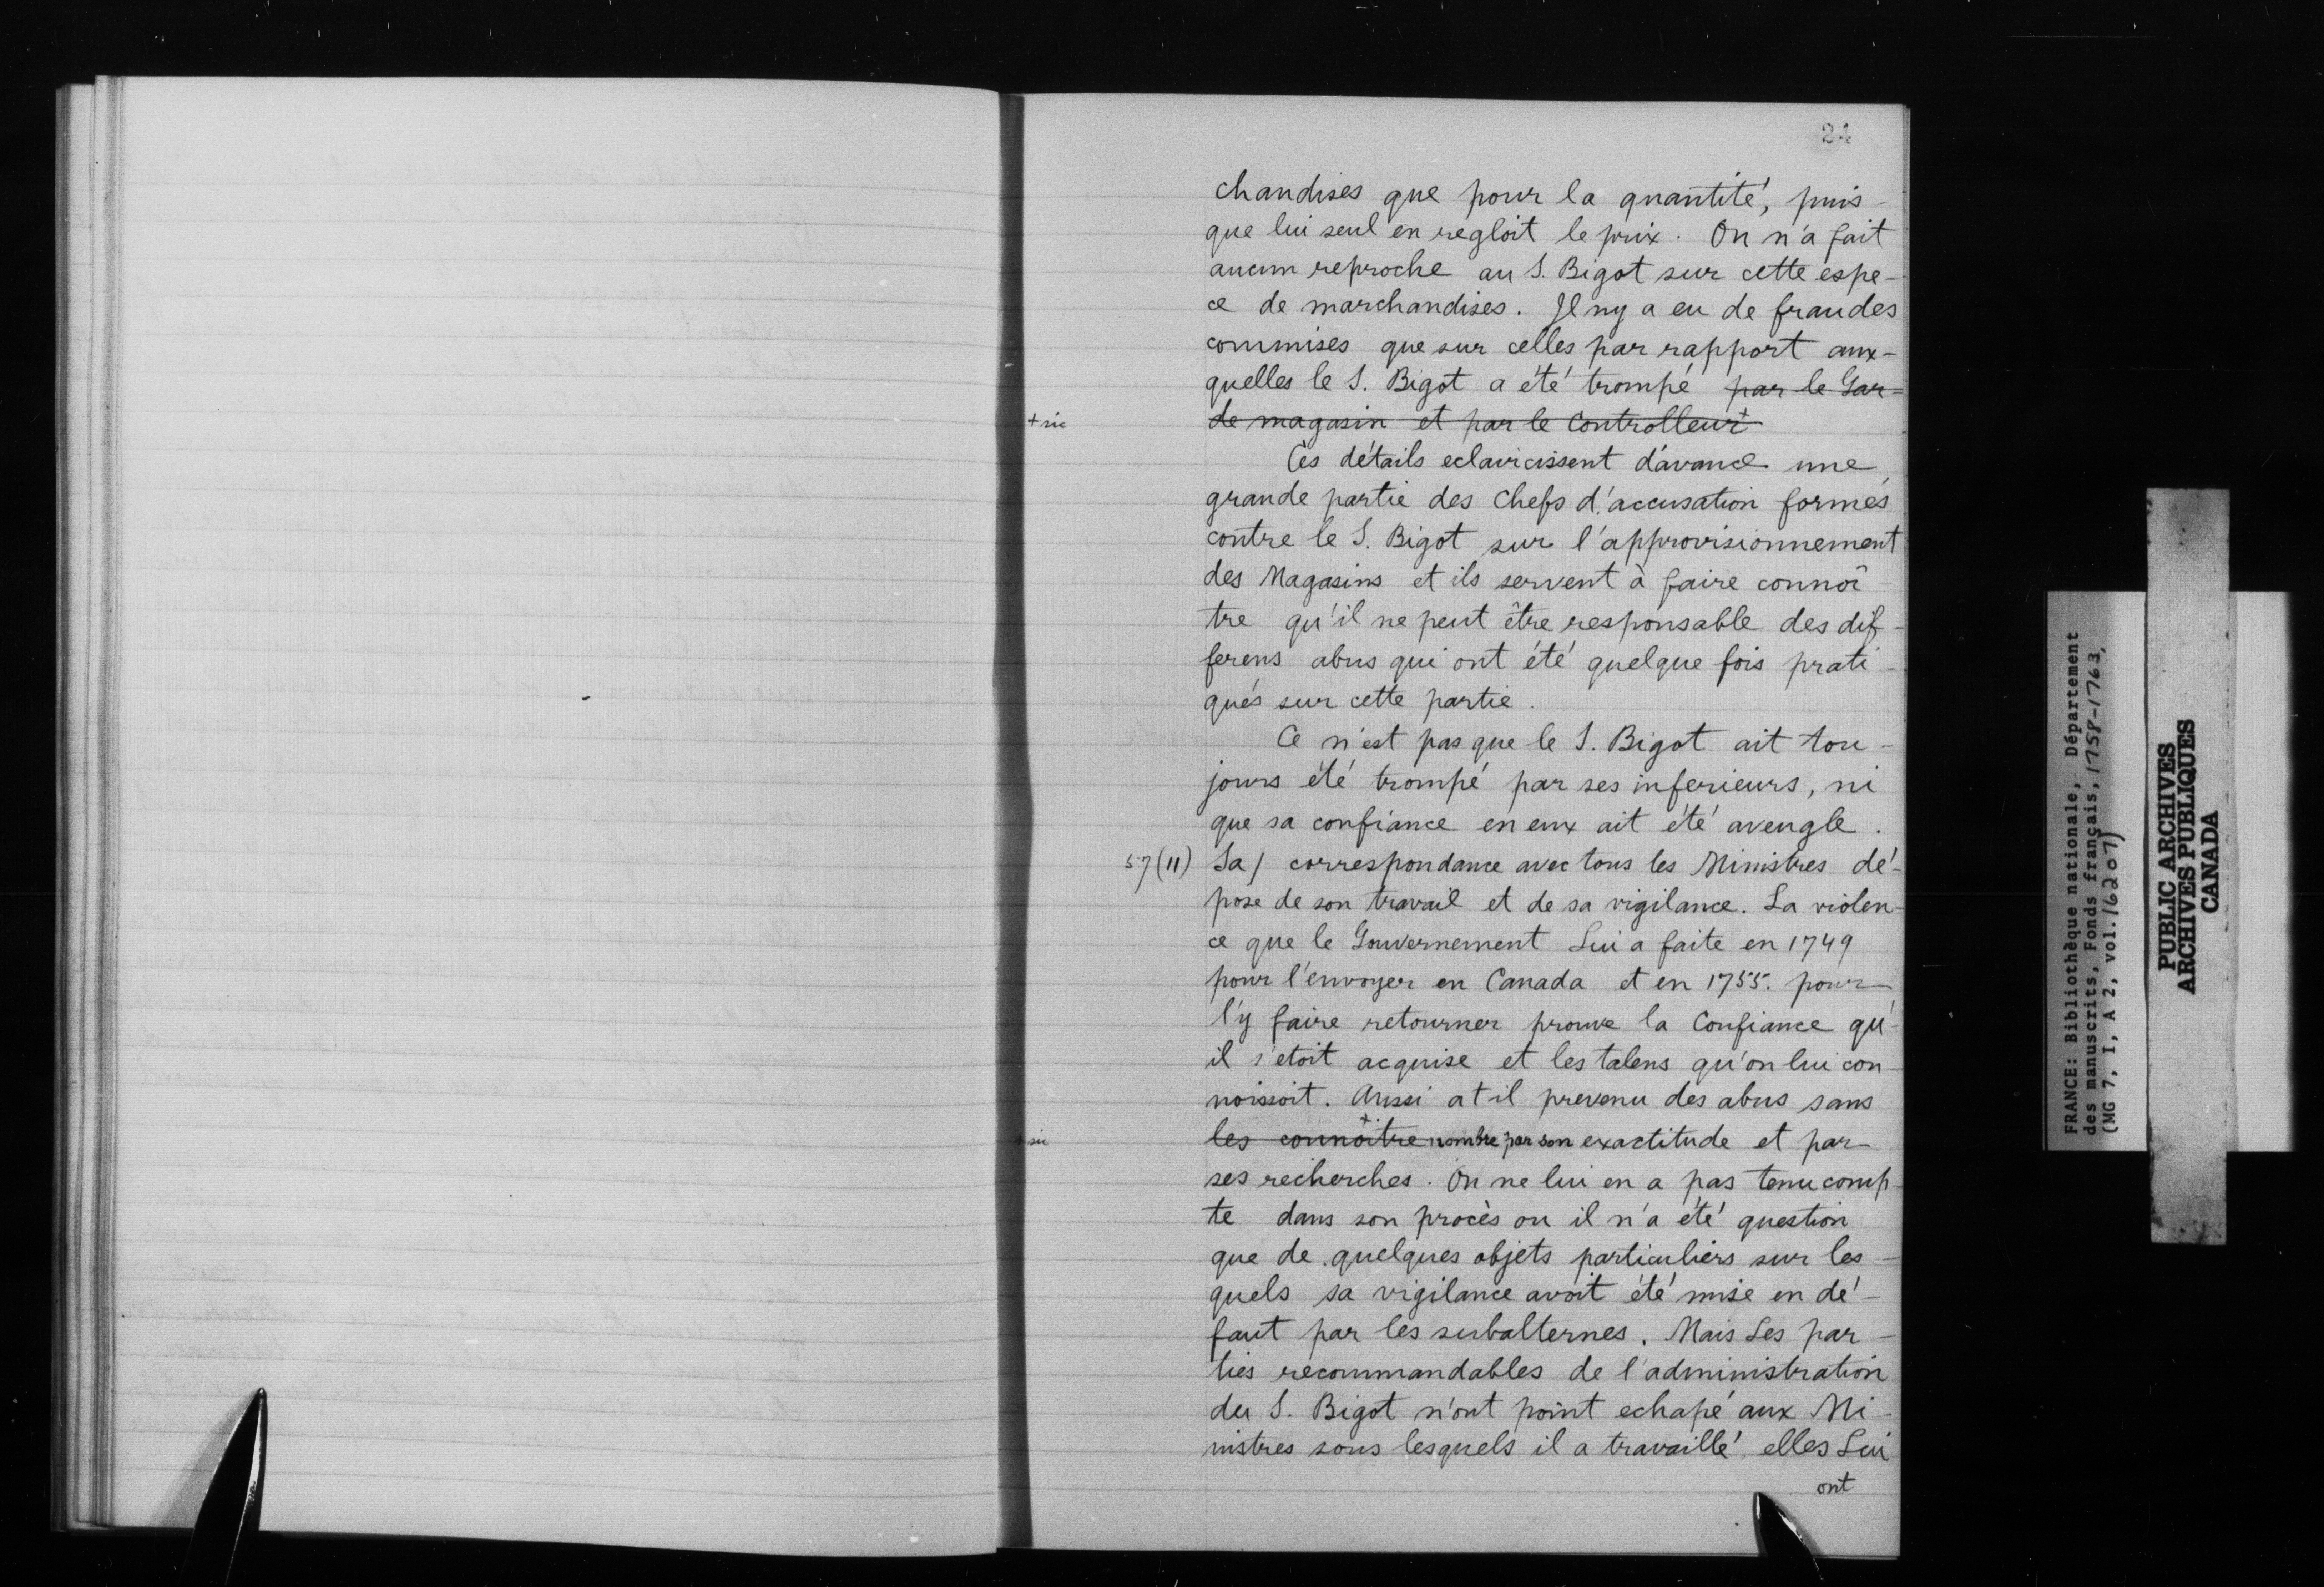 24
chandises que pour la quantité, puis-
que lui seul en regloit le prix. On n'a fait
aucun reproche au S. Bigot sur cette espe-
ce de marchandises. Il ny a eu de fraudes
commises que sur celles par rapport aux-
quelles le S. Bigot a été trompé par le Gar-
+ sic de magasin et par le Controlleur +
Ces détails eclaircissent d'avance une
grande partie des Chefs d'accusation formés
contre le S. Bigot sur l'approvisionnement
des Magasins et ils servent à faire connoî-
tre qu'il ne peut être responsable des dif-
ferens abus qui ont été quelque fois prati-
qués sur cette partie.
Ce n'est pas que le S. Bigot ait tou-
jours été trompé par ses inferieurs, ni
que sa confiance en eux ait été aveugle.
57 (11) Sa / correspondance avec tous les Ministres dé-
pose de son travail et de sa vigilance. La violen-
ce que le Gouvernement Lui a faite en 1749
pour l'envoyer en Canada et en 1755. pour
l'y faire retourner prouve la Confiance qu'-
il s'etoit acquise et les talens qu'on lui con-
noissoit. Aussi a t il prevenu des abus sans
+ sic les connôitre nombre par son exactitude et par
ses recherches. On ne lui en a pas tenu comp-
te dans son procès ou il n'a été question
que de quelques objets particuliers sur les-
quels sa vigilance avoit été mise en dé-
faut par les subalternes. Mais Les par-
ties recommandables de l'administration
du S. Bigot n'ont point echapé aux Mi-
nistres sous lesquels il a travaillé, elles Lui
ont
FRANCE: Bibliothèque nationale, Département
des manuscrits, Fonds français, 1758-1763,
(MG 7, I, A 2, vol. 16207)
PUBLIC ARCHIVES
ARCHIVES PUBLIQUES
CANADA